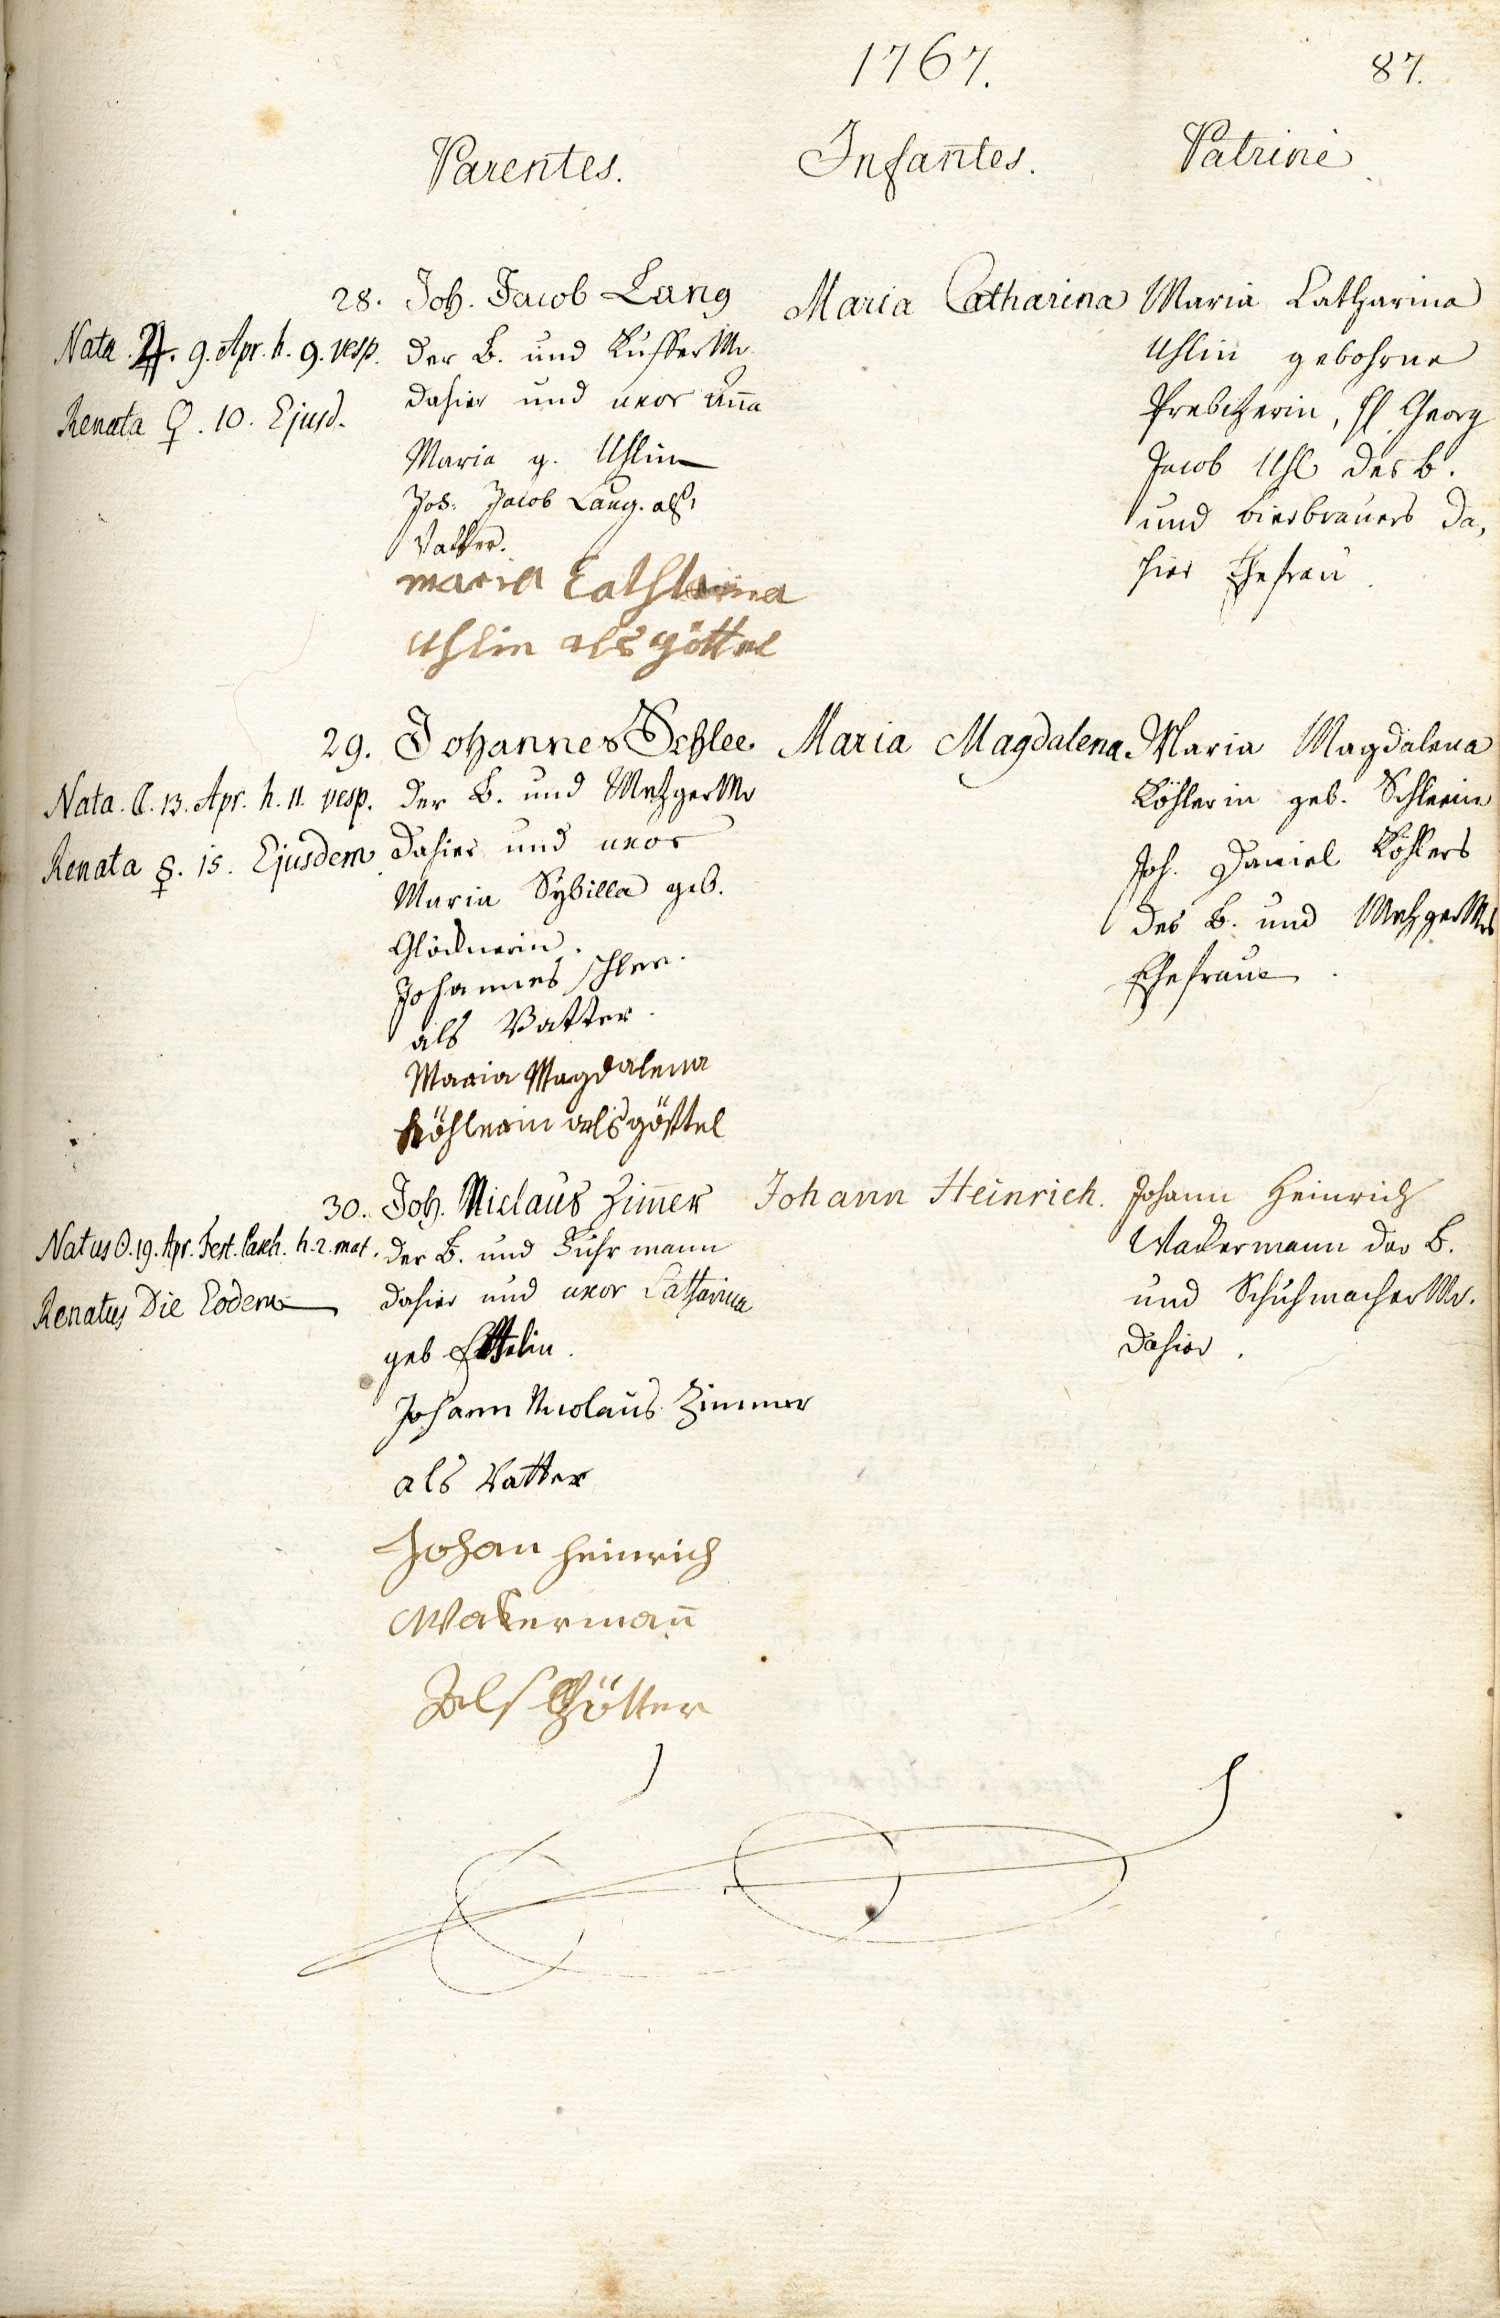 1767.
87.
Parentes.
Infantes.
Patrini
28.
Nata ♃. 9. Apr. h. 9. vesp.
Renata ♀. 10. Ejusd.
Joh. Jacob Lang
der B. und Kuffer Mr.
dahier und uxor Aña
Maria g. Uhlin
Joh. Jacob Lang. als
Vatter.
maria Catharina
Uhlin als göttel
Maria Catharina
Maria Catharina
Uhlin gebohrne
Georg
Jacob Uhl des b.
und bierbrauers da,
hier Ehefrau.
29.
Nata. ☾. 13. Apr. h. 11. vesp.
Renata ☿. 15. Ejusdem
Johannes Schlee
der B. und Metzger Mr
dahier und uxor
Maria Sybilla geb.
Glöcknerin.
Johannes schlee.
als Vatter.
Maria Magdalena
Köhlerin als göttel
Maria Magdalena
Maria Magdalena
Köhlerin geb. Schleein
Joh. Daniel Köhlers
des B. und Metzger Mrs
Ehefraue.
30.
Natus ☉. 19. Apr. Fest. Pasch. h. 2. mat.
Renatus Die Eodem
Joh. Niclaus Zim̄er
der B. und Fuhrmann
dahier und uxor Catharina
geb
Johann Nicolaus Zimmer
als Vatter
Johan Heinrich
Wakerman̄
als Götter
Johann Heinrich.
Johann Heinrich
Wackermann der B.
und Schuhmacher Mr.
dahier.